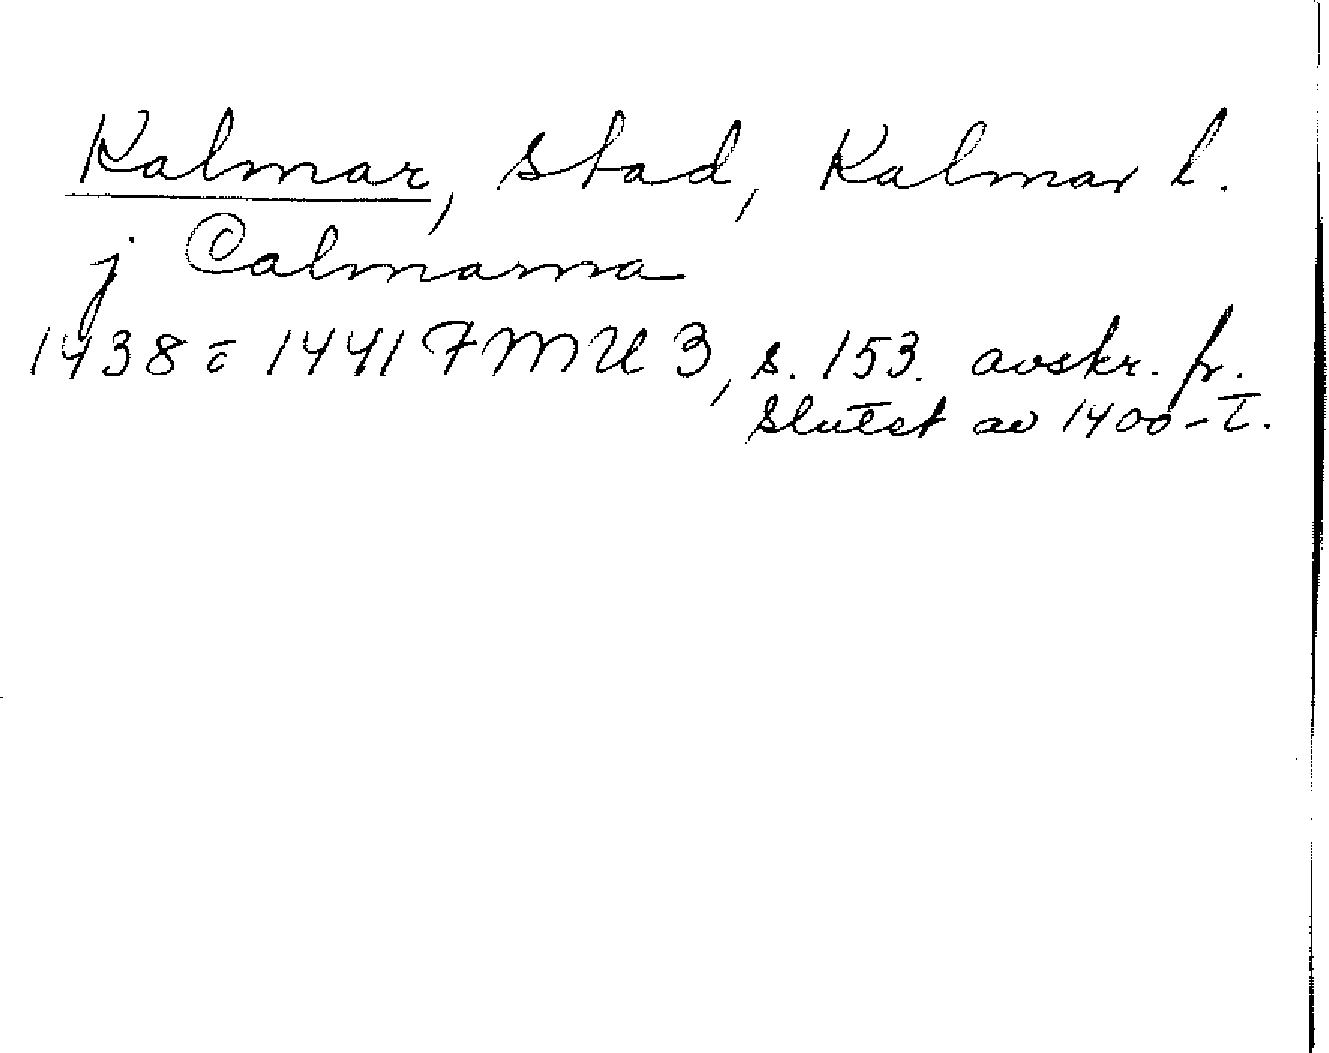 Kalmar, stad, Kalmar l.
j Calmarna
1438 t 1441 FMU 3, s. 153. avskr. fr.
slutet av 1400-t.